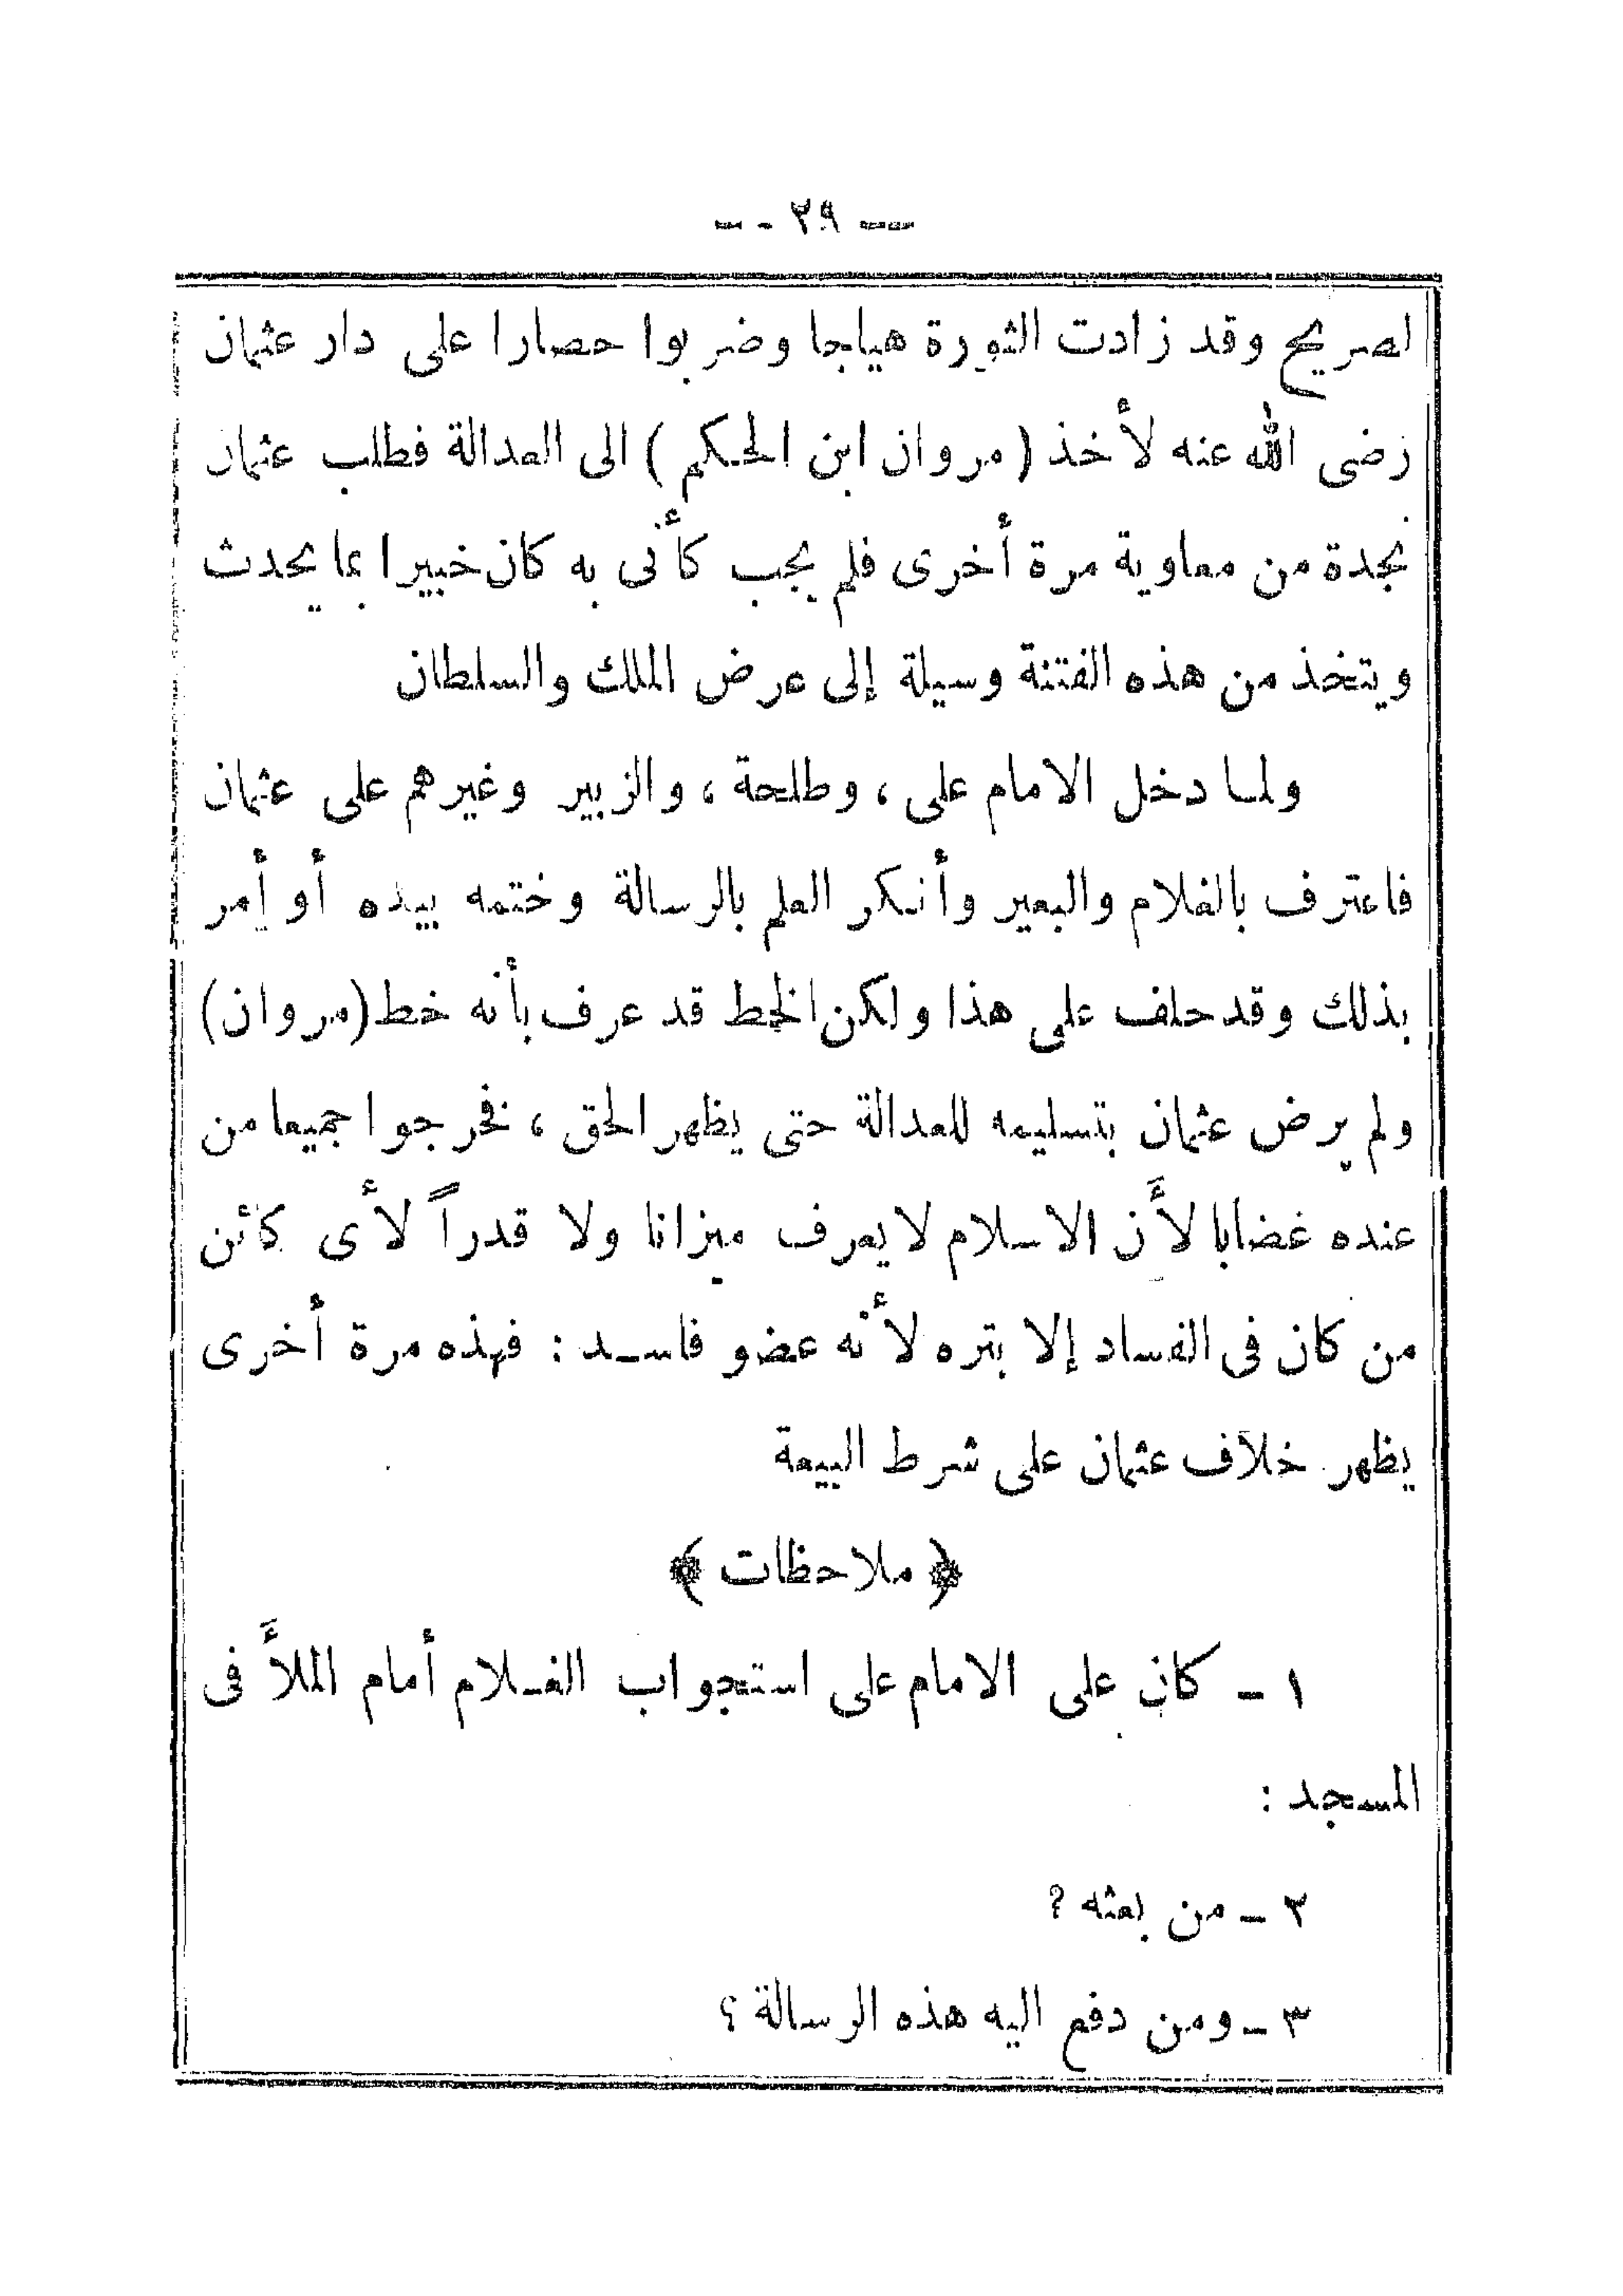 — ٢٩ —
لصريح وقد زادت الثورة هياجا وضربوا حصارا على دار عثمان
رضى الله عنه لأخذ (مروان ابن الحكم) الى العدالة فطلب عثمان
نجدة من معاوية مرة أخرى فلم يجب كأنى به كان خبيرا بما يحدث
ويتخذ من هذه الفتنة وسيلة إلى عرض الملك والسلطان
ولما دخل الامام على ، وطلحة ، والزبير وغيرهم على عثمان
فاعترف بالغلام والبعير وأنكر العلم بالرسالة وختمه بيده أو أمر
بذلك وقد حلف على هذا ولكن الخط قد عرف بأنه خط (مروان)
ولم يرض عثمان بتسليمه للعدالة حتى يظهر الحق ، فخرجوا جميعا من
عنده غضابا لأن الاسلام لا يعرف ميزانا ولا قدراً لأى كائن
من كان فى الفساد إلا بتره لأنه عضو فاسد : فهذه مرة أخرى
يظهر خلاف عثمان على شرط البيعة
﴿ ملاحظات ﴾
١ – كان على الامام على استجواب الغلام أمام الملأ فى
المسجد :
٢ – من بعثه ؟
٣ – ومن دفع اليه هذه الرسالة ؟